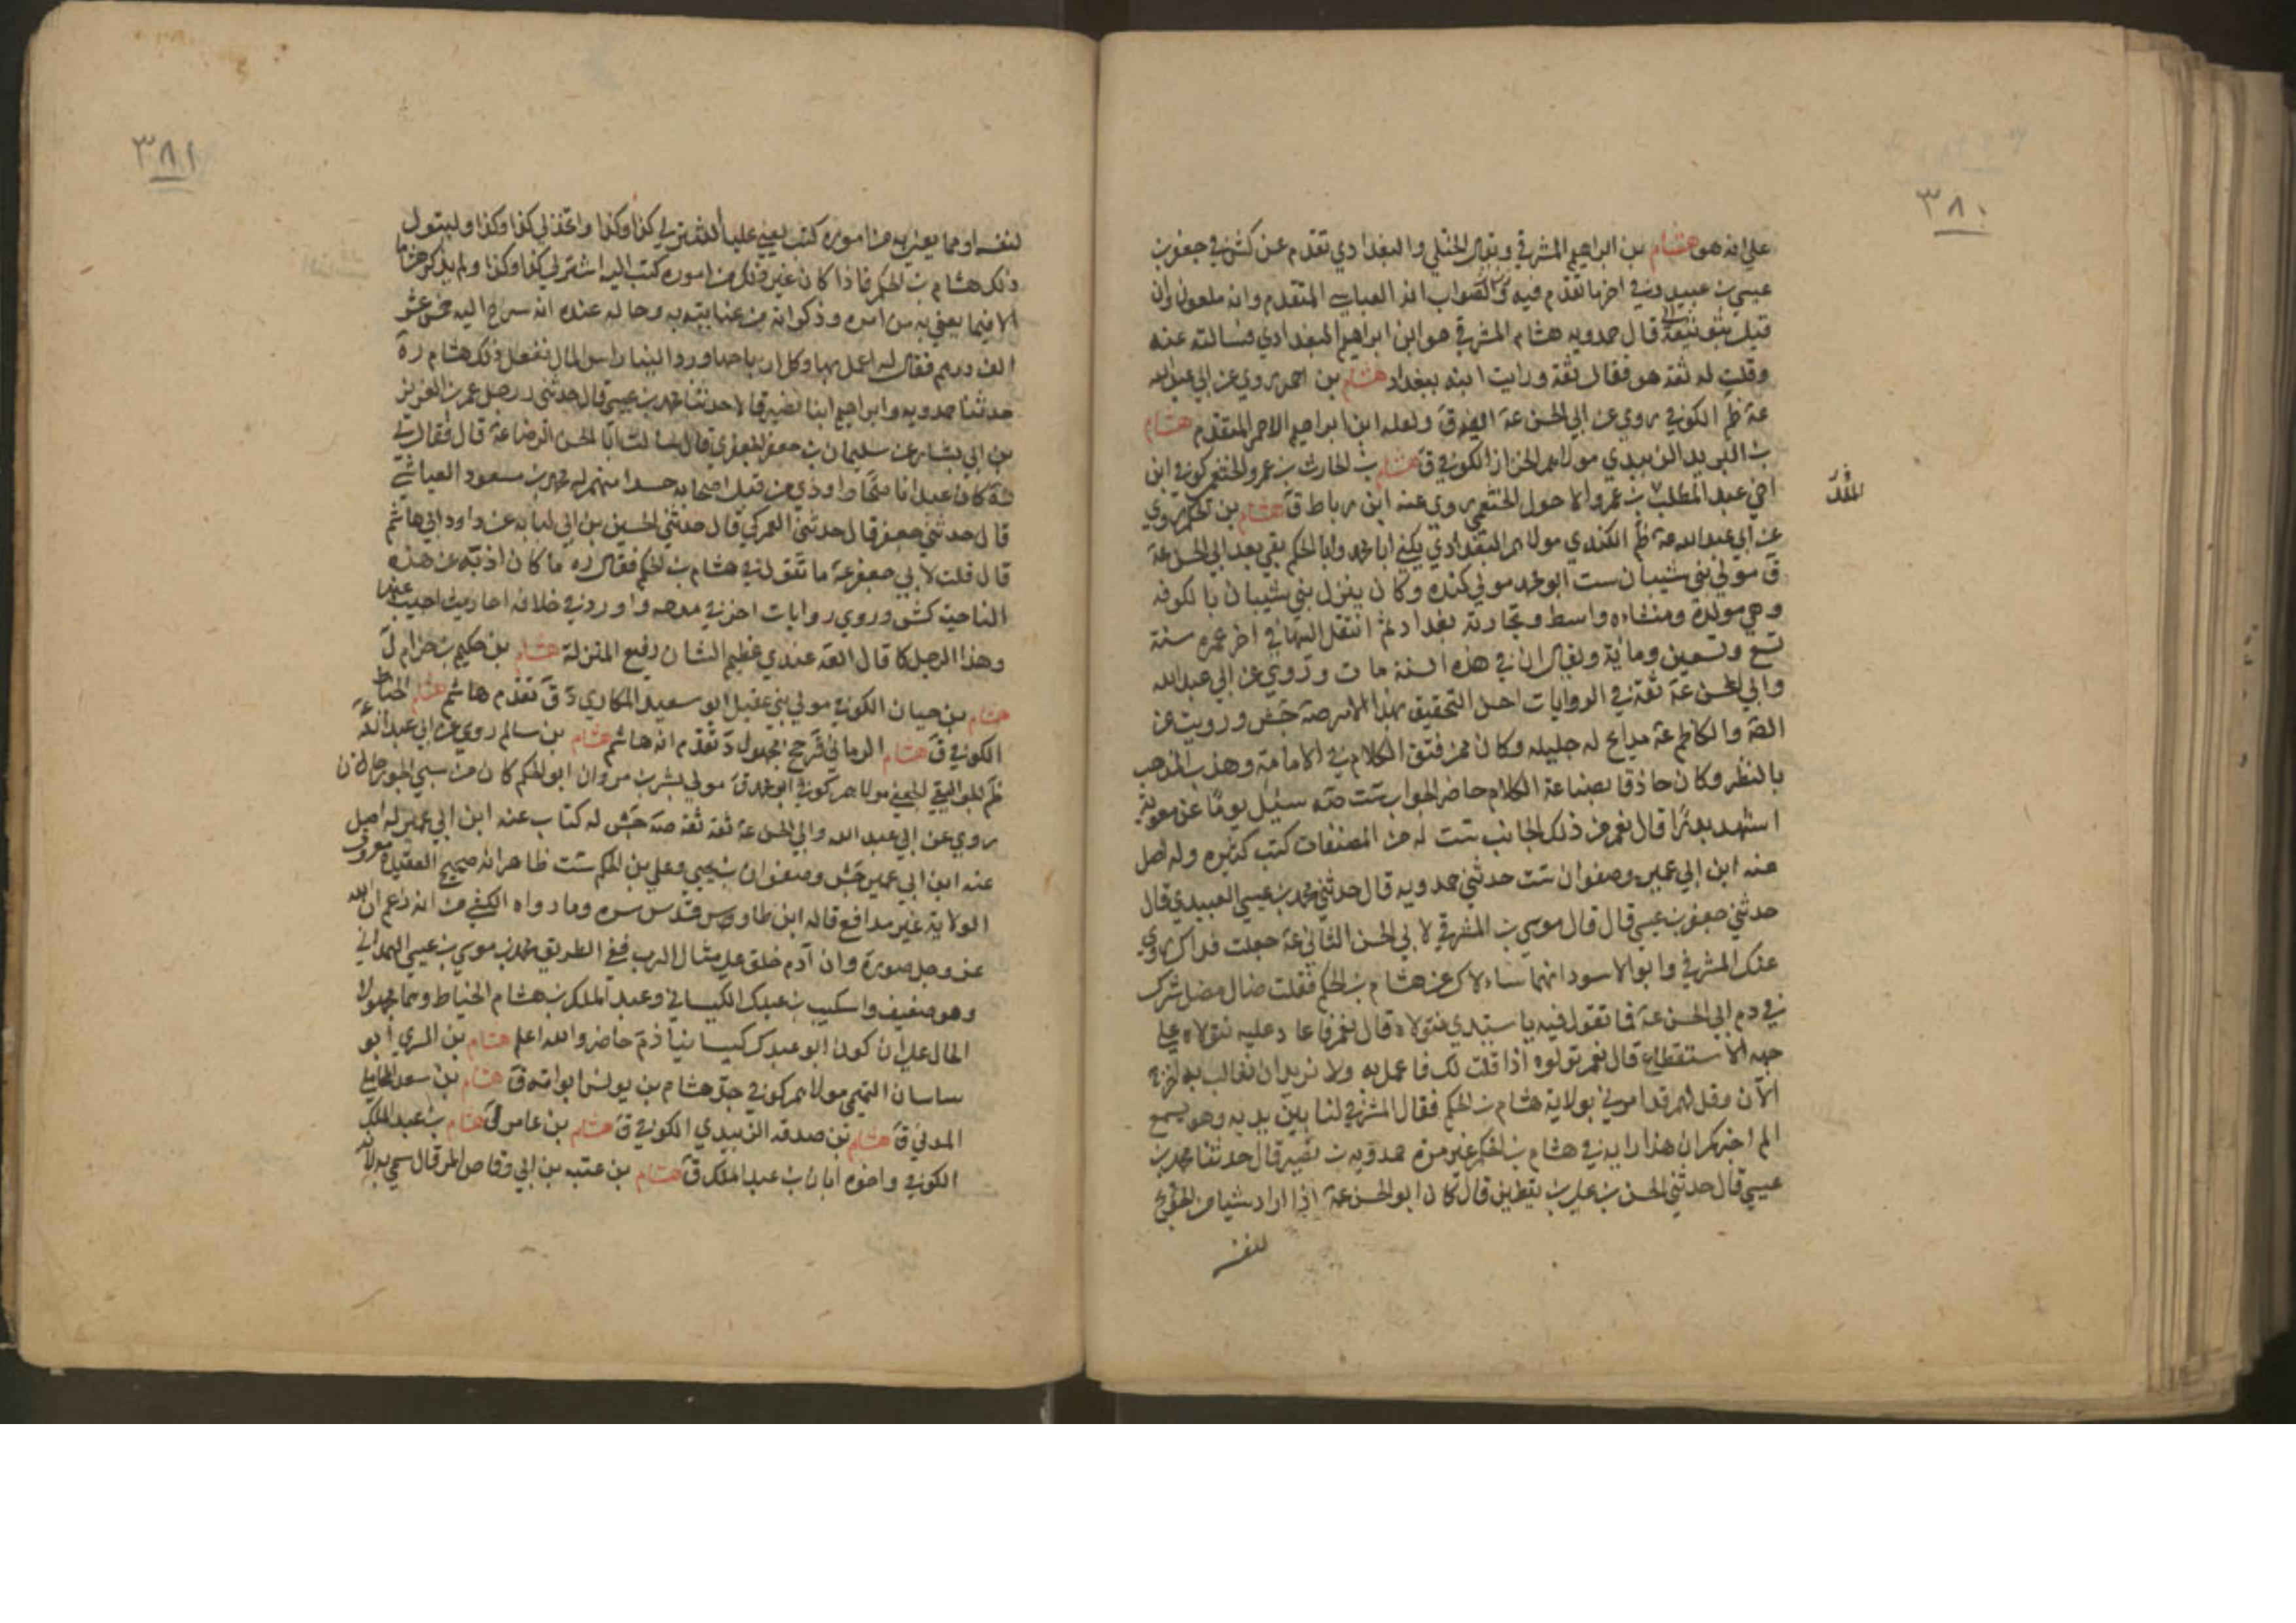 ٣٨٠
على انه هو هشام بن ابراهيم المشرقي ويقال الختلي والبغدادي تقدم عن كش في جعفر بن
عيسى بن عبيد وفي اخر ما تقدم فيه والصواب انه العباسي المتقدم وانه ملعون وان
قيل ثقة قال حمدويه هشام المشرقي هو ابن ابراهيم البغدادي فسالته عنه
وقلت له ثقة هو فقال ثقة ورايت ابنه ببغداد هشام بن احمر روي عن ابي عبد الله
عة ظم الكوفي روى عن ابي الحسن عة ق ولعله ابن ابراهيم الاحمر المتقدم هشام
بن البريد الزبيدي مولاهم الخزاز الكوفي ق هشام بن الحارث بن عمرو الخثعمي كوفي ابن
اخي عبد المطلب بن عمرو الاحول الخثعمي روى عنه ابن رباط ق هشام بن الحكم روي
عن ابي عبد الله عة ظم الكندي مولاهم البغدادي يكنى ابا محمد وابا الحكم بقي بعد ابي الحسن عة
ق مولى بني شيبان ست ابو محمد مولى كنده وكان ينزل بني شيبان بالكوفه
وهي مولده ومنشاءه واسط وتجارته بغداد ثم انتقل اليها في اخر عمره سنة
تسع وتسعين ومائة ويقال ان في هذه السنة مات وروي عن ابي عبد الله
وابي الحسن عة ثقة في الروايات احسن التحقيق بهذا الامر صة جش ورويت عن
الصة والكاظم عة مدايح له جليله وكان ممن فتق الكلام في الامامة وهذب المذهب
بالنظر وكان حاذقا بصناعة الكلام حاضر الجواب ست صة سئل يوما عن معوية
اشهد بدرًا قال نعم من ذلك الجانب ست له من المصنفات كتب كثيره وله اصل
عنه ابن ابي عمير وصفوان ست حدثني حمدويه قال حدثني محمد بن عيسى العبيدي قال
حدثني جعفر بن عيسى قال قال موسى بن المشرقي لابي الحسن الثاني عة جعلت فداك روي
عنك المشرقي وابو الاسود انهما ساءلاك عن هشام بن الحكم فقلت ضال مضل شرك
في دم ابي الحسن عة فما تقول فيه يا سيدي نتولاه قال نعم فاعاد عليه نتولاه على
جهه الاستقطاع قال نعم تولوه اذا قلت لك فاعمل به ولا تريد ان تغالب به اخرج
الآن وقل لهم قد امرني بولاية هشام بن الحكم فقال المشرقي لنا بين يديه وهو يسمع
الم اخبركم ان هذا رايه في هشام بن الحكم غير مرة حمدويه بن نصير قال حدثنا محمد بن
عيسى قال حدثني الحسن بن علي بن يقطين قال كان ابو الحسن عة اذا اراد شيا من الحوايج
لنفسه
٣٨١
لنفسه او مما يعنى به من اموره كتب يعني عليا اشتر لي كذا وكذا واتخذ لي كذا وكذا وليتول
ذلك هشام بن الحكم فاذا كان غير ذلك من اموره كتب اليه اشتر لي كذا وكذا ولم يذكر هشاما
الا فيما يعني به من امره وذكر انه من عنايته به وحاله عنده انه سرح اليه خمس عشر
الف درهم فقال له اعمل بها وكل ارباحها ورد الينا راس المال ففعل ذلك هشام ره
حدثنا حمدويه وابراهيم ابنا نصير قالا حدثنا محمد بن عيسى قال حدثني زحل عمر بن عبد العزيز
بن ابي بشار عن سليمان بن جعفر الجعفري قال سالت ابا الحسن الرضا عة قال فقال لي
كان عبدا ناصحا واوذي من قبل اصحابه حسدا منهم له محمد بن مسعود العياشي
قال حدثني جعفر قال حدثني العمركي قال حدثني الحسين بن ابي لبابه عن داود ابي هاشم
قال قلت لابي جعفر عة ما تقول في هشام بن الحكم فقال ره ما كان اذبه عن هذه
الناحيه كش وروي روايات اخر في مدحه واورد في خلافه احاديث اجيب عنها
وهذا الرجل كما قال العة عندي عظيم الشان رفيع المنزلة هشام بن حكيم بن حزام ل
هشام بن حيان الكوفي مولى بني عقيل ابو سعيد المكاري د ق تقدم هاشم هشام الخياط
الكوفي ق هشام الرماني ق جخ مجهول د تقدم انه هاشم هشام بن سالم روي عن ابي عبد الله عة
ظم الجواليقي الجعفي مولاهم كوفي ابو محمد ق مولى بشر بن مروان ابو الحكم كان من سبي الجوزجان
روي عن ابي عبد الله وابي الحسن عة ثقة ثقة صة جش له كتاب عنه ابن ابي عمير له اصل
عنه ابن ابي عمير جش وصفوان بن يحيى وعلي بن الحكم ست ظاهر انه صحيح العقيدة معروف
الولاية غير مدافع قاله ابن طاووس قدس سره وما رواه الكشي من انه زعم ان الله
عز وجل صورة وان آدم خلق على مثال الرب ففي الطريق محمد بن موسى بن عيسى الهمداني
وهو ضعيف واسكيب بن عبدك الكيساني وعبد الملك بن هشام الخياط وهما مجهولا
الحال على ان كون ابو عبدك كيسانيا ذم حاضر والله اعلم هشام بن السري ابو
ساسان التميمي مولاهم كوفي هشام بن يونس ابو اميه ق هشام بن سعد المحاملي
المدني ق هشام بن صدقه الزبيدي الكوفي ق هشام بن عامر ل هشام بن عبد الملك
الكوفي واخوه ابان بن عبد الملك ق هشام بن عتبه بن ابي وقاص المرقال سمي به لانه